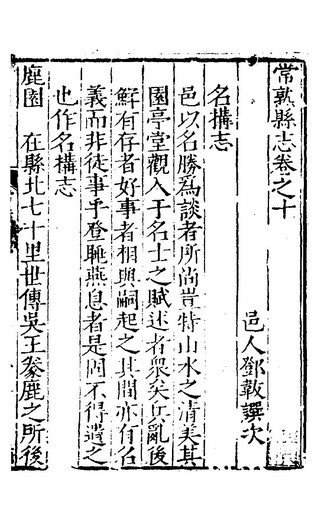 常熟縣志卷之十
邑人鄧韍譔次
名構志
邑以名勝爲談者所尚豈特山水之清美其
園亭堂觀入于名士之賦述者衆矣兵亂後
鮮有存者好事者相與嗣起之其間亦有名
義而非徒事乎登眺燕息者是固不得遺之
也作名構志
鹿園 在縣北七十里世傳吳王豢鹿之所後